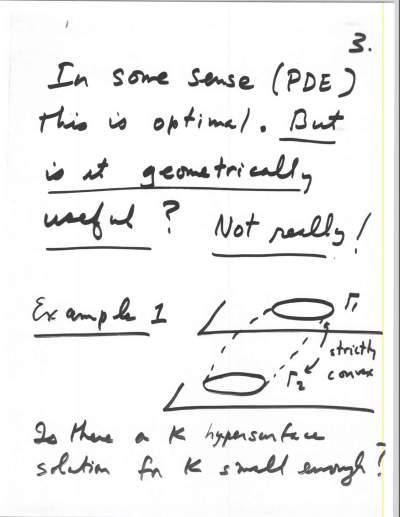 3.
In some sense (PDE)
this is optimal. But
is it geometrically
useful? Not really!
Example 1
Γ1
strictly
convex
Γ2
Is there a K hypersurface
solution for K small enough?